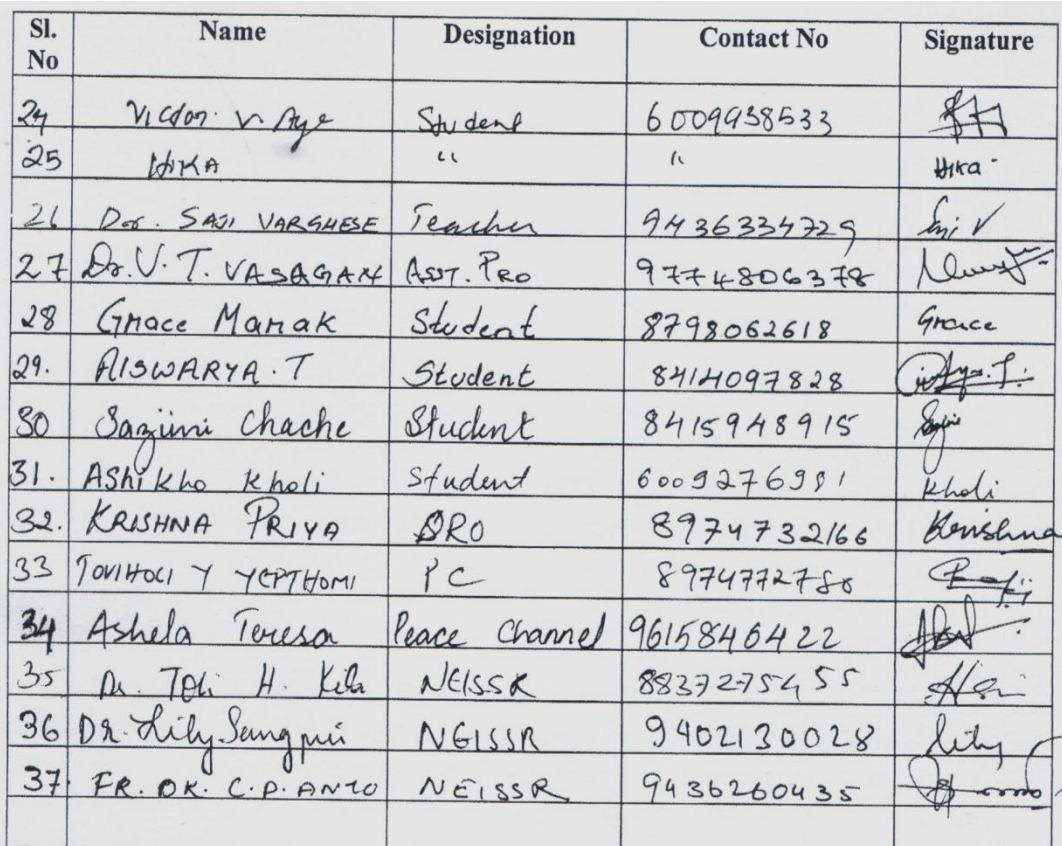 Sl. No Name Designation Contact No Signature
24 Victor V Aye Student 6009938533
25 HIKA " " Hika
26 Dr. SAJI VARGHESE Teacher 9436334729 Saji V
27 Dr. V. T. VASAGAN ASST. PRO 9774806378
28 Grace Marak Student 8798062618 Grace
29. AISWARYA. T Student 8414097828
30 Sazüni Chache Student 8415948915
31. AShikho Kholi Student 6009276991 Kholi
32. KRISHNA PRIYA DRO 8974732166 Krishna
33 TOVIHOLI Y YEPTHOMI PC 8974772780
34 Ashela Teresa Peace Channel 9615846422
35 Dr. Toli H. Kiba NEISSR 8837275455
36 Dr. Lily Sangpui NEISSR 9402130028 Lily
37. FR. DR. C.P. ANTO NEISSR 9436260435